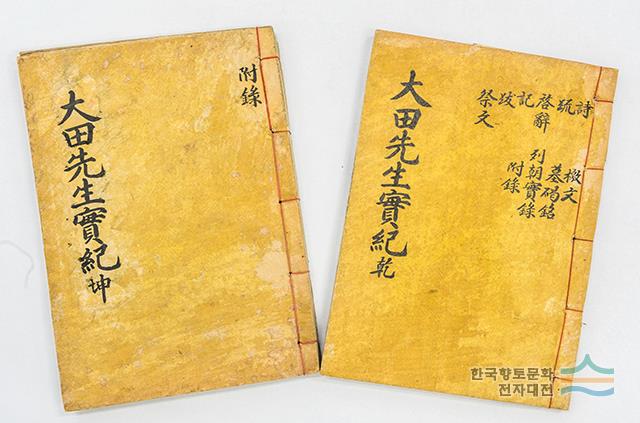 附錄
大田先生實紀 坤
詩
疏
啓辭
記
跋
祭文
檄文
墓碣銘
列朝實錄
附錄
大田先生實紀 乾
한국향토문화
전자대전